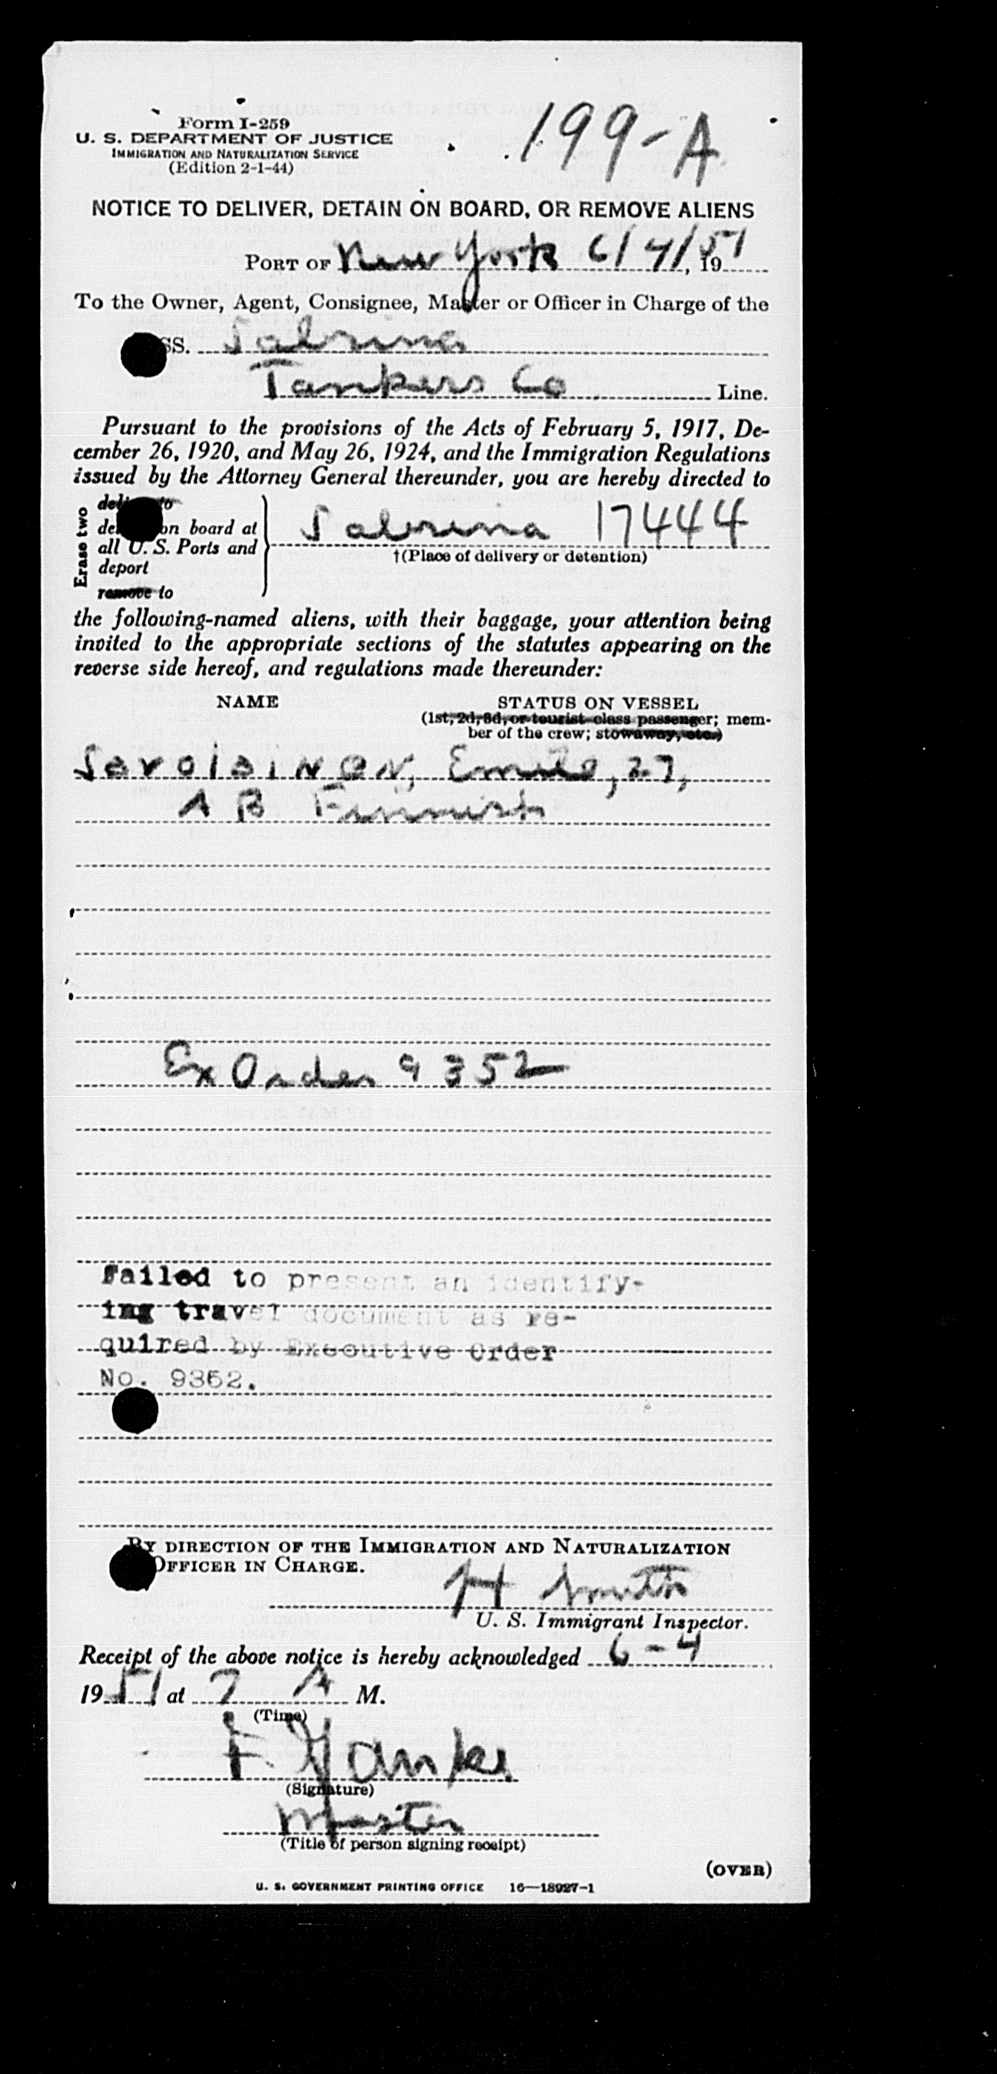 Form I-259
U. S. DEPARTMENT OF JUSTICE
IMMIGRATION AND NATURALIZATION SERVICE
(Edition 2-1-44)
199-A
NOTICE TO DELIVER, DETAIN ON BOARD, OR REMOVE ALIENS
PORT OF New York 6/4/, 1951
To the Owner, Agent, Consignee, Master or Officer in Charge of the
SS. Sabrina
Tankers Co Line.
Pursuant to the provisions of the Acts of February 5, 1917, De-
cember 26, 1920, and May 26, 1924, and the Immigration Regulations
issued by the Attorney General thereunder, you are hereby directed to
Erase two
deliver to
detain on board at
all U. S. Ports and
deport
remove to
Sabrina 17444
†(Place of delivery or detention)
the following-named aliens, with their baggage, your attention being
invited to the appropriate sections of the statutes appearing on the
reverse side hereof, and regulations made thereunder:
NAME STATUS ON VESSEL
(1st, 2d, 3d, or tourist class passenger; mem-
ber of the crew; stowaway, etc.)
Savolainen, Emile, 27,
AB Finnish
Ex Order 9352
Failed to present an identify-
ing travel document as re-
quired by Executive Order
No. 9352.
BY DIRECTION OF THE IMMIGRATION AND NATURALIZATION
OFFICER IN CHARGE.
H Smith
U. S. Immigrant Inspector.
Receipt of the above notice is hereby acknowledged 6-4
1951 at 7 A M.
(Time)
(Signature)
Master
(Title of person signing receipt)
(OVER)
U. S. GOVERNMENT PRINTING OFFICE 16—18927-1